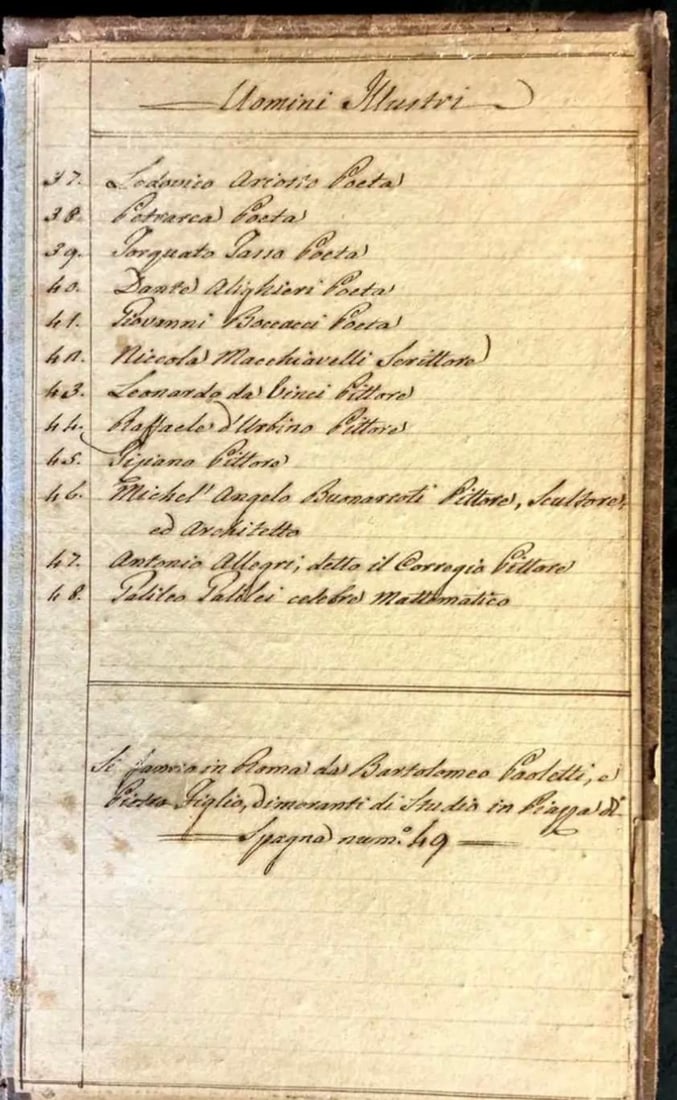 Uomini Illustri
37. Lodovico Ariosto Poeta
38. Petrarca Poeta
39. Torquato Tasso Poeta
40. Dante Alighieri Poeta
41. Giovanni Boccacci Poeta
42. Niccola Macchiavelli Scrittore
43. Leonardo da Vinci Pittore
44. Raffaele d'Urbino Pittore
45. Tiziano Pittore
46. Michel' Angelo Buonarroti Pittore, Scultore,
ed Architetto
47. Antonio Allegri, detto il Corregio Pittore
48. Galileo Galilei celebre Mattematico
Si fanno in Roma da Bartolomeo Paoletti, e
Pietro Figlio, dimoranti di Studio in Piazza di
Spagna num.° 49